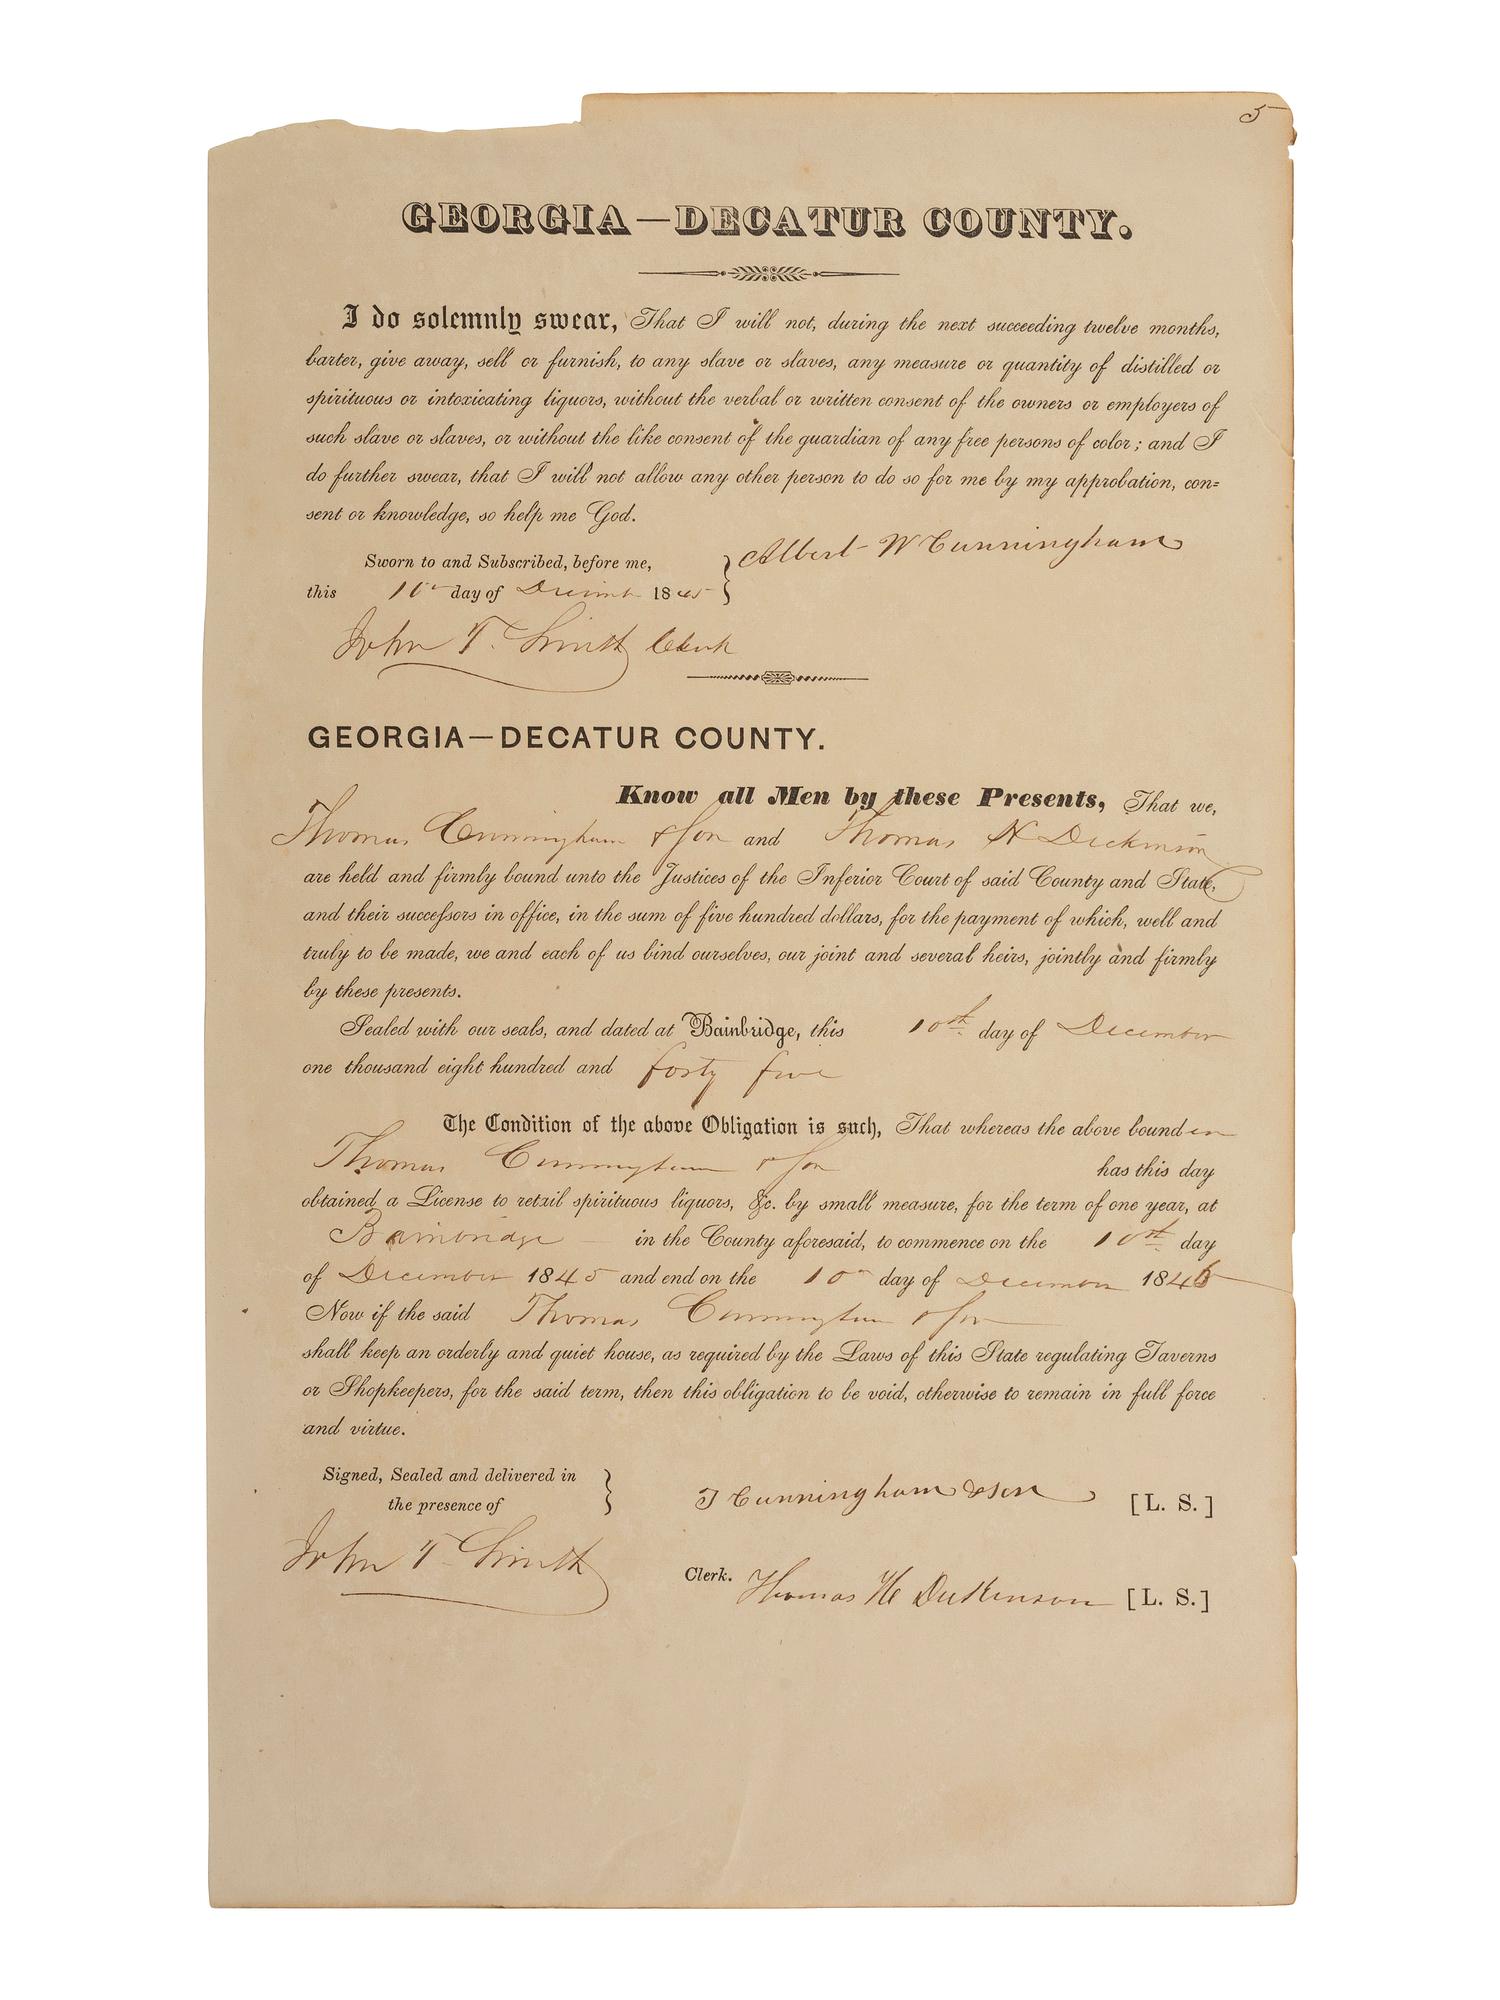 5
GEORGIA—DECATUR COUNTY.
I do solemnly swear, That I will not, during the next succeeding twelve months,
barter, give away, sell or furnish, to any slave or slaves, any measure or quantity of distilled or
spirituous or intoxicating liquors, without the verbal or written consent of the owners or employers of
such slave or slaves, or without the like consent of the guardian of any free persons of color; and I
do further swear, that I will not allow any other person to do so for me by my approbation, con=
sent or knowledge, so help me God.
Sworn to and Subscribed, before me, } Albert W Cunningham
this 10th day of December 1845
John T. Smith Clerk
GEORGIA—DECATUR COUNTY.
Know all Men by these Presents, That we,
Thomas Cunningham & Son and Thomas H Dickinson
are held and firmly bound unto the Justices of the Inferior Court of said County and State,
and their successors in office, in the sum of five hundred dollars, for the payment of which, well and
truly to be made, we and each of us bind ourselves, our joint and several heirs, jointly and firmly
by these presents.
Sealed with our seals, and dated at Bainbridge, this 10th day of December
one thousand eight hundred and forty five
The Condition of the above Obligation is such, That whereas the above bounden
Thomas Cunningham & Son has this day
obtained a License to retail spirituous liquors, &c. by small measure, for the term of one year, at
Bainbridge — in the County aforesaid, to commence on the 10th day
of December 1845 and end on the 10th day of December 1846
Now if the said Thomas Cunningham & Son
shall keep an orderly and quiet house, as required by the Laws of this State regulating Taverns
or Shopkeepers, for the said term, then this obligation to be void, otherwise to remain in full force
and virtue.
Signed, Sealed and delivered in
the presence of } T Cunningham & Son [L. S.]
John T Smith
Clerk. Thomas H Dickinson [L. S.]